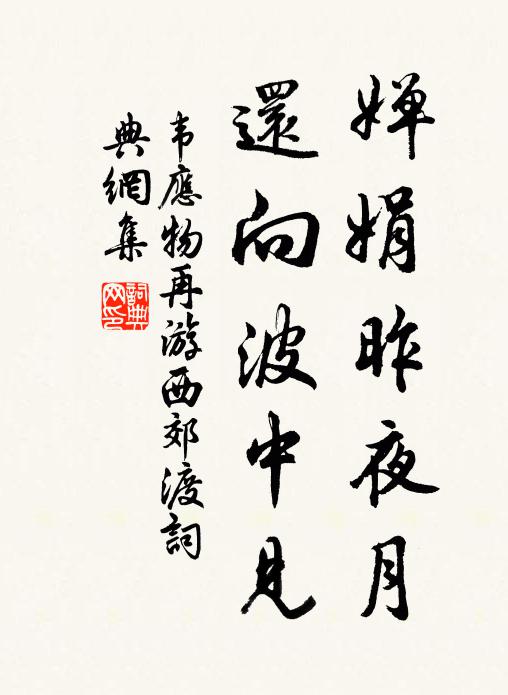 婵娟昨夜月
還向波中見
韦應物再游西郊渡詞
典網集
詞典
网印